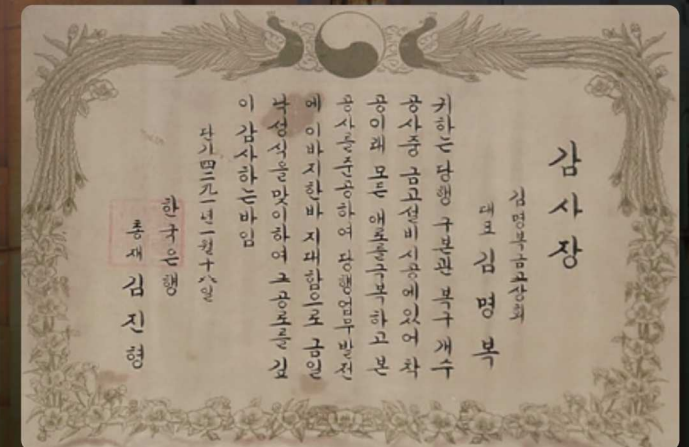 감사장
김명복금고상회
대표 김명복
귀하는 당행 구본관 복구 개수
공사중 금고설비 시공에 있어 착
공이래 모든 애로를 극복하고 본
공사를 준공하여 당행업무발전
에 이바지한바 지대함으로 금일
낙성식을 맞이하여 그 공로를 깊
이 감사하는바임
단기四二九一년一월十八일
한국은행
총재 김진형